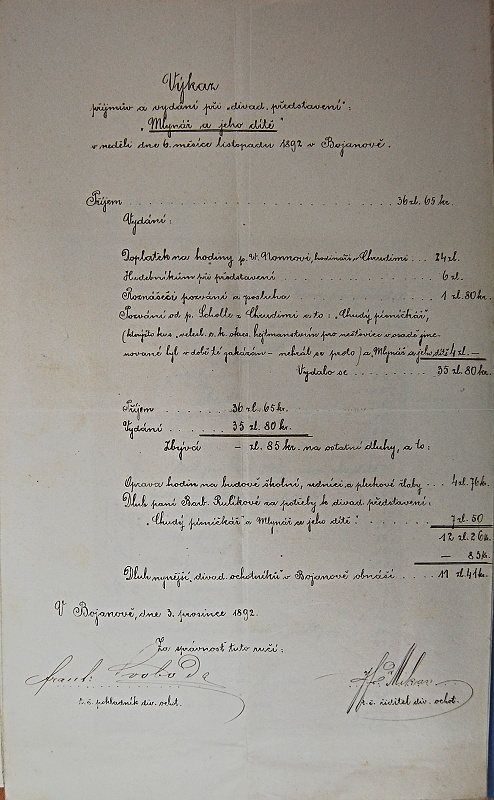 Výkaz
příjmův a vydání při „divad. představení":
„Mlynář a jeho dítě"
v neděli dne 6. měsíce listopadu 1892 v Bojanově.
Příjem . . . . . . . . . . 36 zl. 65 kr.
Vydání:
Doplatek na hodiny p. V. Nonnovi, hodináři v Chrudimi . . . 24 zl.
Hudebníkům při představení . . . . . . 6 zl.
Roznášeči pozvání a posluha . . . . . . 1 zl. 80 kr.
Pozvání od p. Scholle z Chrudimi a to: „Chudý písničkář",
(kterýžto kus veleb. c. k. okres. hejtmanstvím pro neštovice v osadě jme-
nované byl v době té zakázán – nehrál se proto) a Mlynář a jeho dítě 4 zl. –
Vydalo se . . . . 35 zl. 80 kr.
Příjem . . . . . . 36 zl. 65 kr.
Vydání . . . . 35 zl. 80 kr.
Zbývá – zl. 85 kr. na ostatní dluhy, a to:
Oprava hodin na budově školní, a plechové žlaby . . . 4 zl. 76 kr.
Dluh paní Barb. Rulíkové za potřeby k divad. představení:
„Chudý písničkář a Mlynář a jeho dítě" . . . . . 7 zl. 50
12 zl. 26 kr.
– 85 kr.
Dluh nynější „divad. ochotníků" v Bojanově obnáší . . . 11 zl. 41 kr.
V Bojanově, dne 3. prosince 1892.
Za správnost tuto ručí:
Frant. Svoboda
t. č. pokladník div. ochot.
t. č. ředitel div. ochot.